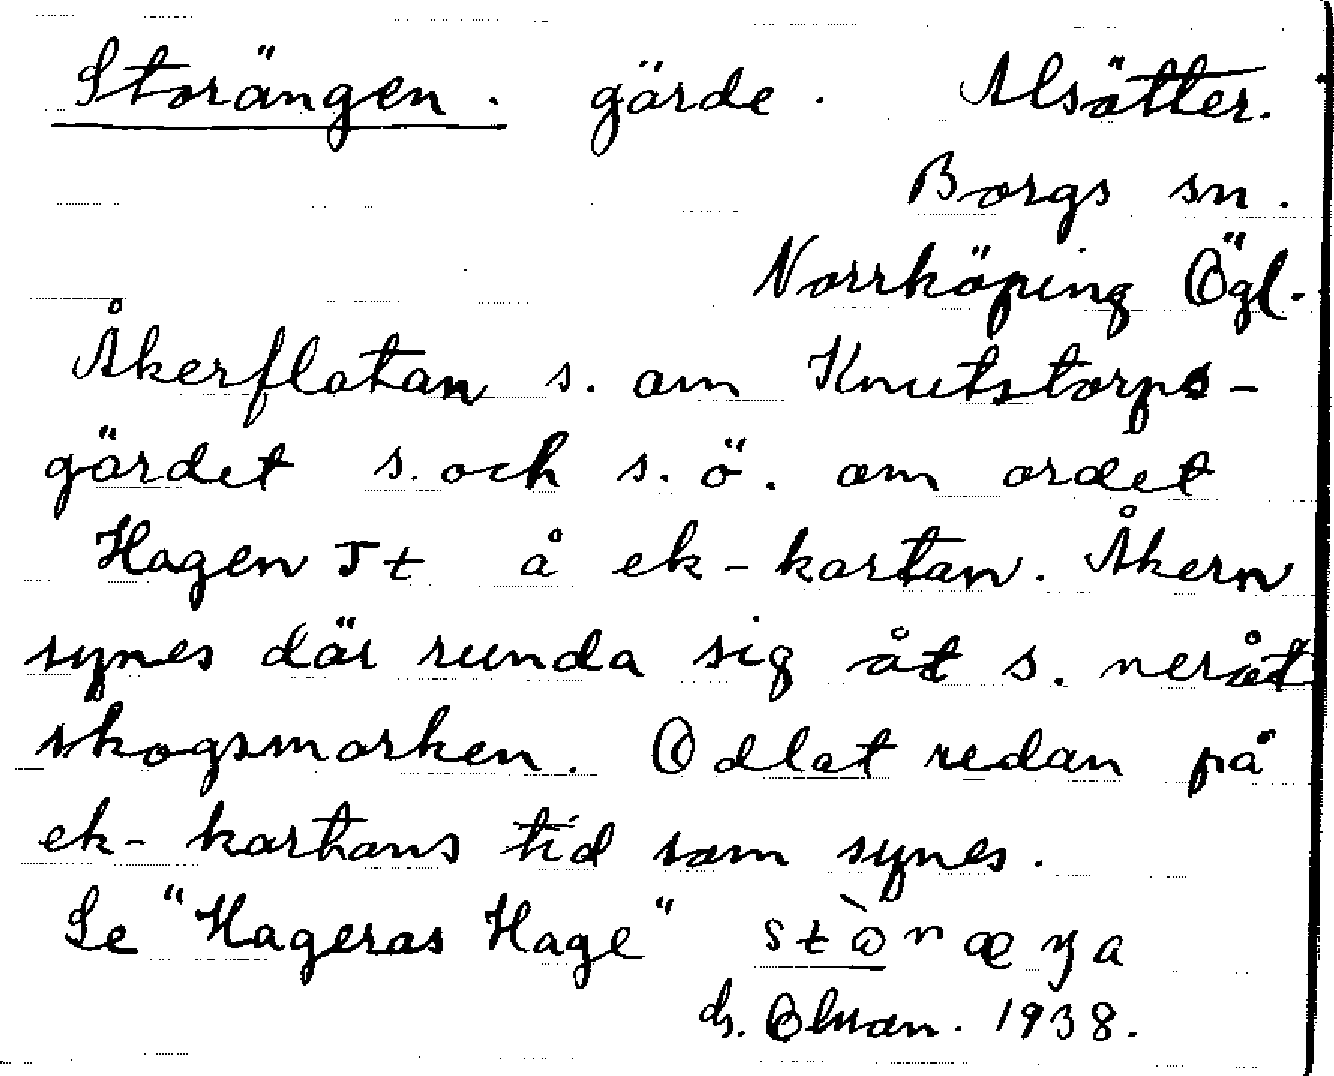 Storängen. gärde. Alsätter.
Borgs sn.
Norrköping Ögl.
Åkerflatan s. om Knutstorps-
gärdet s. och s. ö. om ordet
Hagen Jt å ek-kartan. Åkern
synes där runda sig åt s. neråt
skogsmarken. Odlat redan på
ek-kartans tid som synes.
Se "Hageras Hage" stòræŋa
1938.